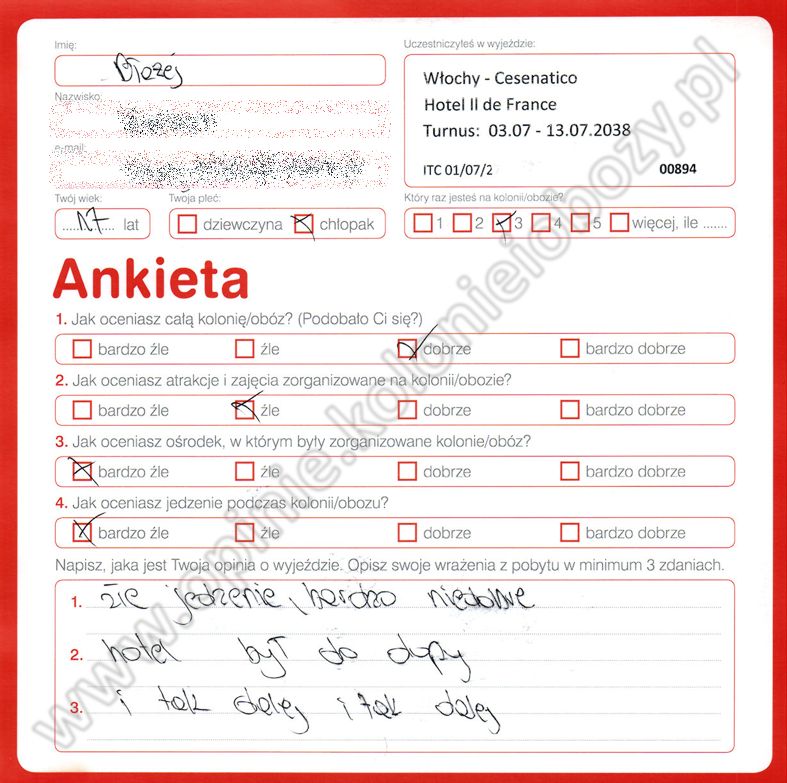 Imię:
Błażej
Uczestniczyłeś w wyjeździe:
Włochy - Cesenatico
Hotel Il de France
Turnus: 03.07 - 13.07.2038
ITC 01/07/2
00894
Nazwisko:
e-mail:
Twój wiek:
17 lat
Twoja płeć:
dziewczyna chłopak
Który raz jesteś na kolonii/obozie?
1 2 3 4 5 więcej, ile .......
Ankieta
1. Jak oceniasz całą kolonię/obóz? (Podobało Ci się?)
bardzo źle źle dobrze bardzo dobrze
2. Jak oceniasz atrakcje i zajęcia zorganizowane na kolonii/obozie?
bardzo źle źle dobrze bardzo dobrze
3. Jak oceniasz ośrodek, w którym były zorganizowane kolonie/obóz?
bardzo źle źle dobrze bardzo dobrze
4. Jak oceniasz jedzenie podczas kolonii/obozu?
bardzo źle źle dobrze bardzo dobrze
Napisz, jaka jest Twoja opinia o wyjeździe. Opisz swoje wrażenia z pobytu w minimum 3 zdaniach.
1. źle jedzenie, bardzo niedobre
2. hotel był do dupy
3. i tak dalej i tak dalej
www.opinie.kolonieiobozy.pl